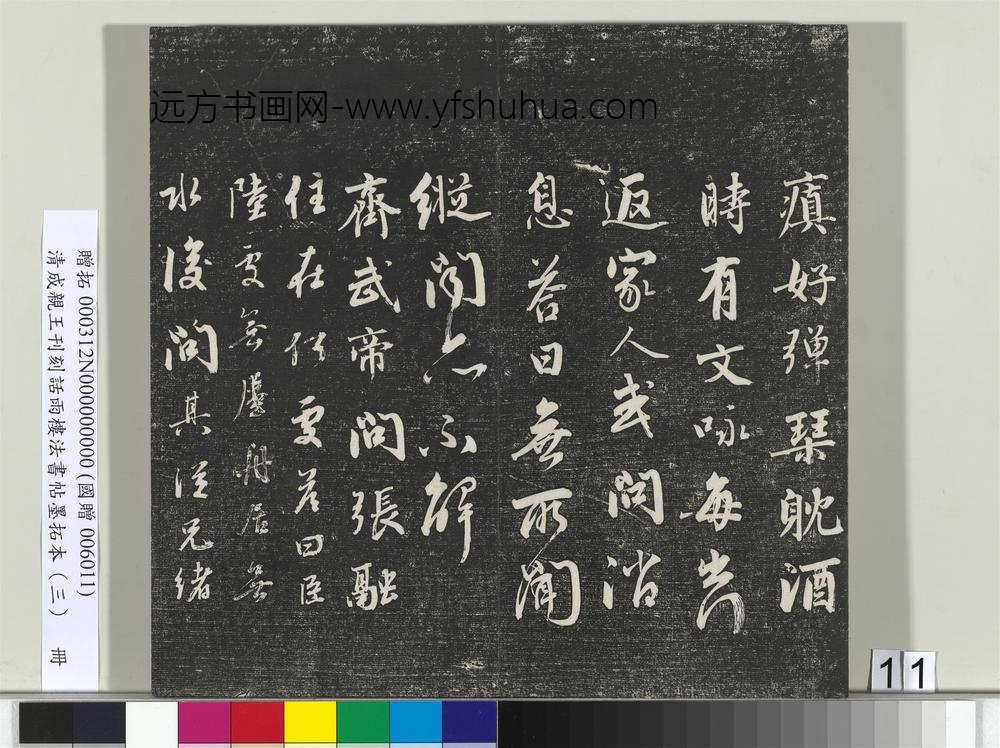 瘨好弹琹躭酒
時有文咏每出
返家人或問消
息答曰無所聞
縱聞亦不解
齊武帝問張融
住在何處答曰臣
陸處無屋舟居無
水後問其從兄緒
远方书画网-www.yfshuhua.com
贈拓 000312N000000000 (國贈 006011)
清成親王刊刻話雨樓法書帖墨拓本（三） 冊
11